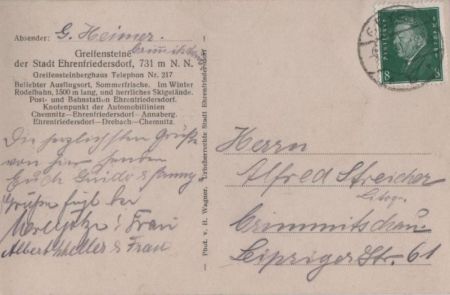 Absender: G. Heimer.
Greifensteine
der Stadt Ehrenfriedersdorf, 731 m N. N.
Greifensteinberghaus Telephon Nr. 217
Beliebter Ausflugsort, Sommerfrische. Im Winter
Rodelbahn, 1500 m lang, und herrliches Skigelände.
Post- und Bahnstation Ehrenfriedersdorf.
Knotenpunkt der Automobillinien
Chemnitz—Ehrenfriedersdorf—Annaberg.
Ehrenfriedersdorf—Drebach—Chemnitz.
Die herzlichsten Grüße
von hier senden
Euch Guido &
Grüße
Frau
Albert & Frau
Phot. v. R. Wagner.
Herrn
Alfred Streicher
Lithogr.
Crimmitschau
Leipziger Str. 61
8 8